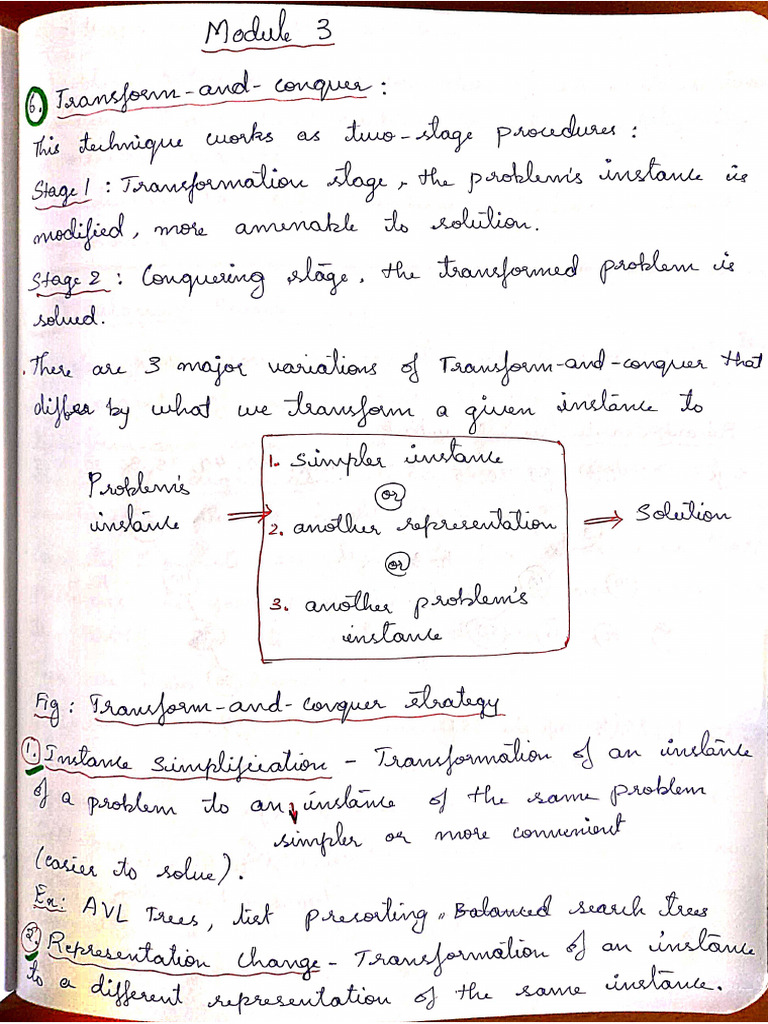 Module 3
6. Transform-and-conquer :
This technique works as two-stage procedures :
Stage 1 : Transformation stage, the problem's instance is
modified, more amenable to solution.
Stage 2 : Conquering stage, the transformed problem is
solved.
There are 3 major variations of Transform-and-conquer that
differ by what we transform a given instance to
Problem's
instance
⇒
1. simpler instance
or
2. another representation
or
3. another problem's
instance
⇒ Solution
Fig : Transform-and-conquer strategy
1. Instance Simplification - Transformation of an instance
of a problem to an instance of the same problem
simpler or more convenient
(easier to solve).
Ex: AVL Trees, list presorting, Balanced search trees
2. Representation Change - Transformation of an instance
to a different representation of the same instance.